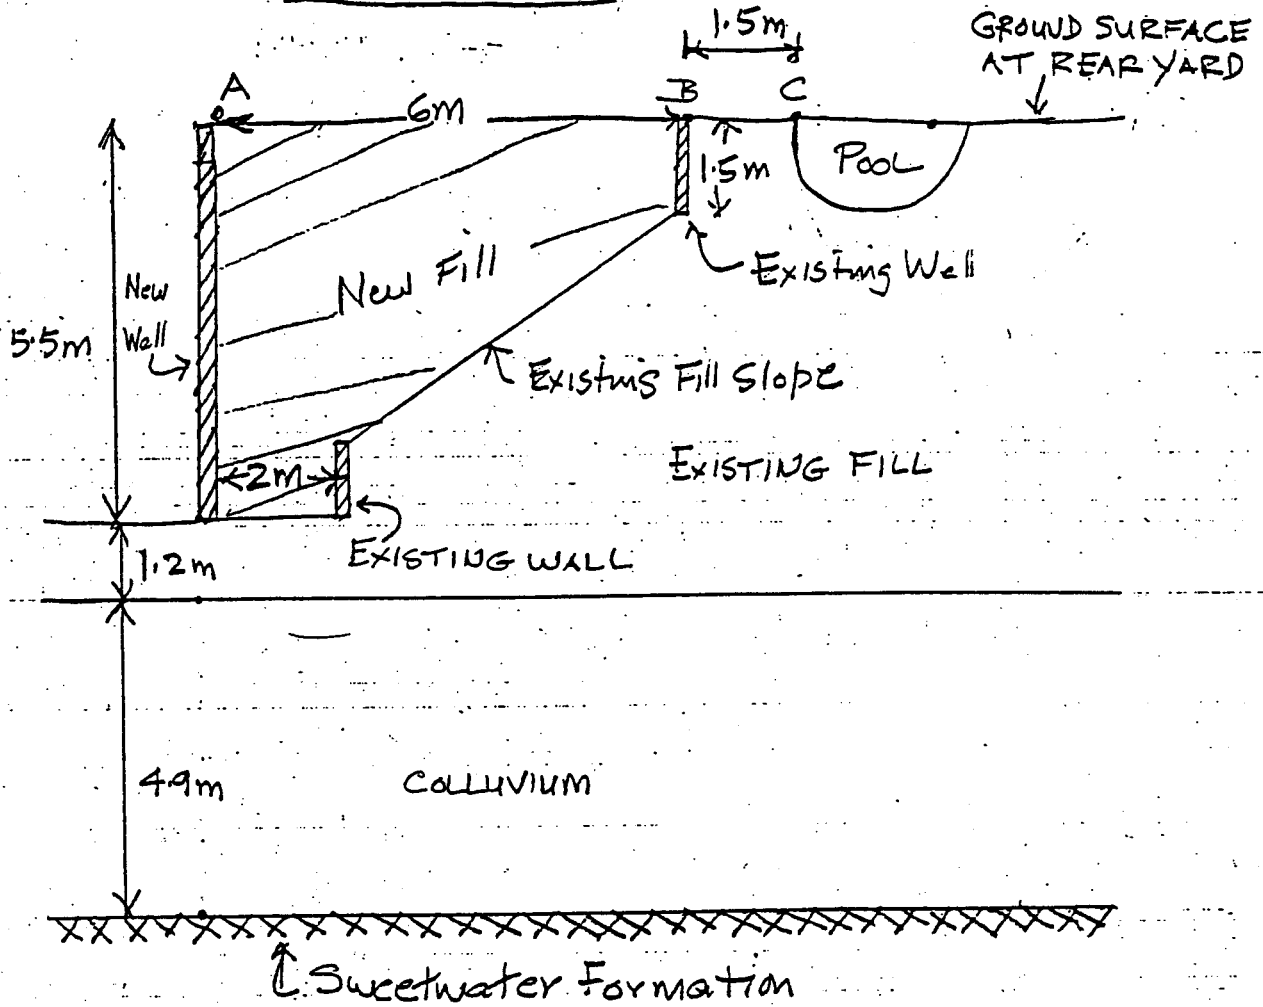 1.5m
GROUND SURFACE
AT REAR YARD
A
6m
B
C
1.5m
POOL
New Fill
Existing Wall
New
Wall
5.5m
Existing Fill Slope
EXISTING FILL
2m
EXISTING WALL
1.2m
4.9m
COLLUVIUM
Sweetwater Formation